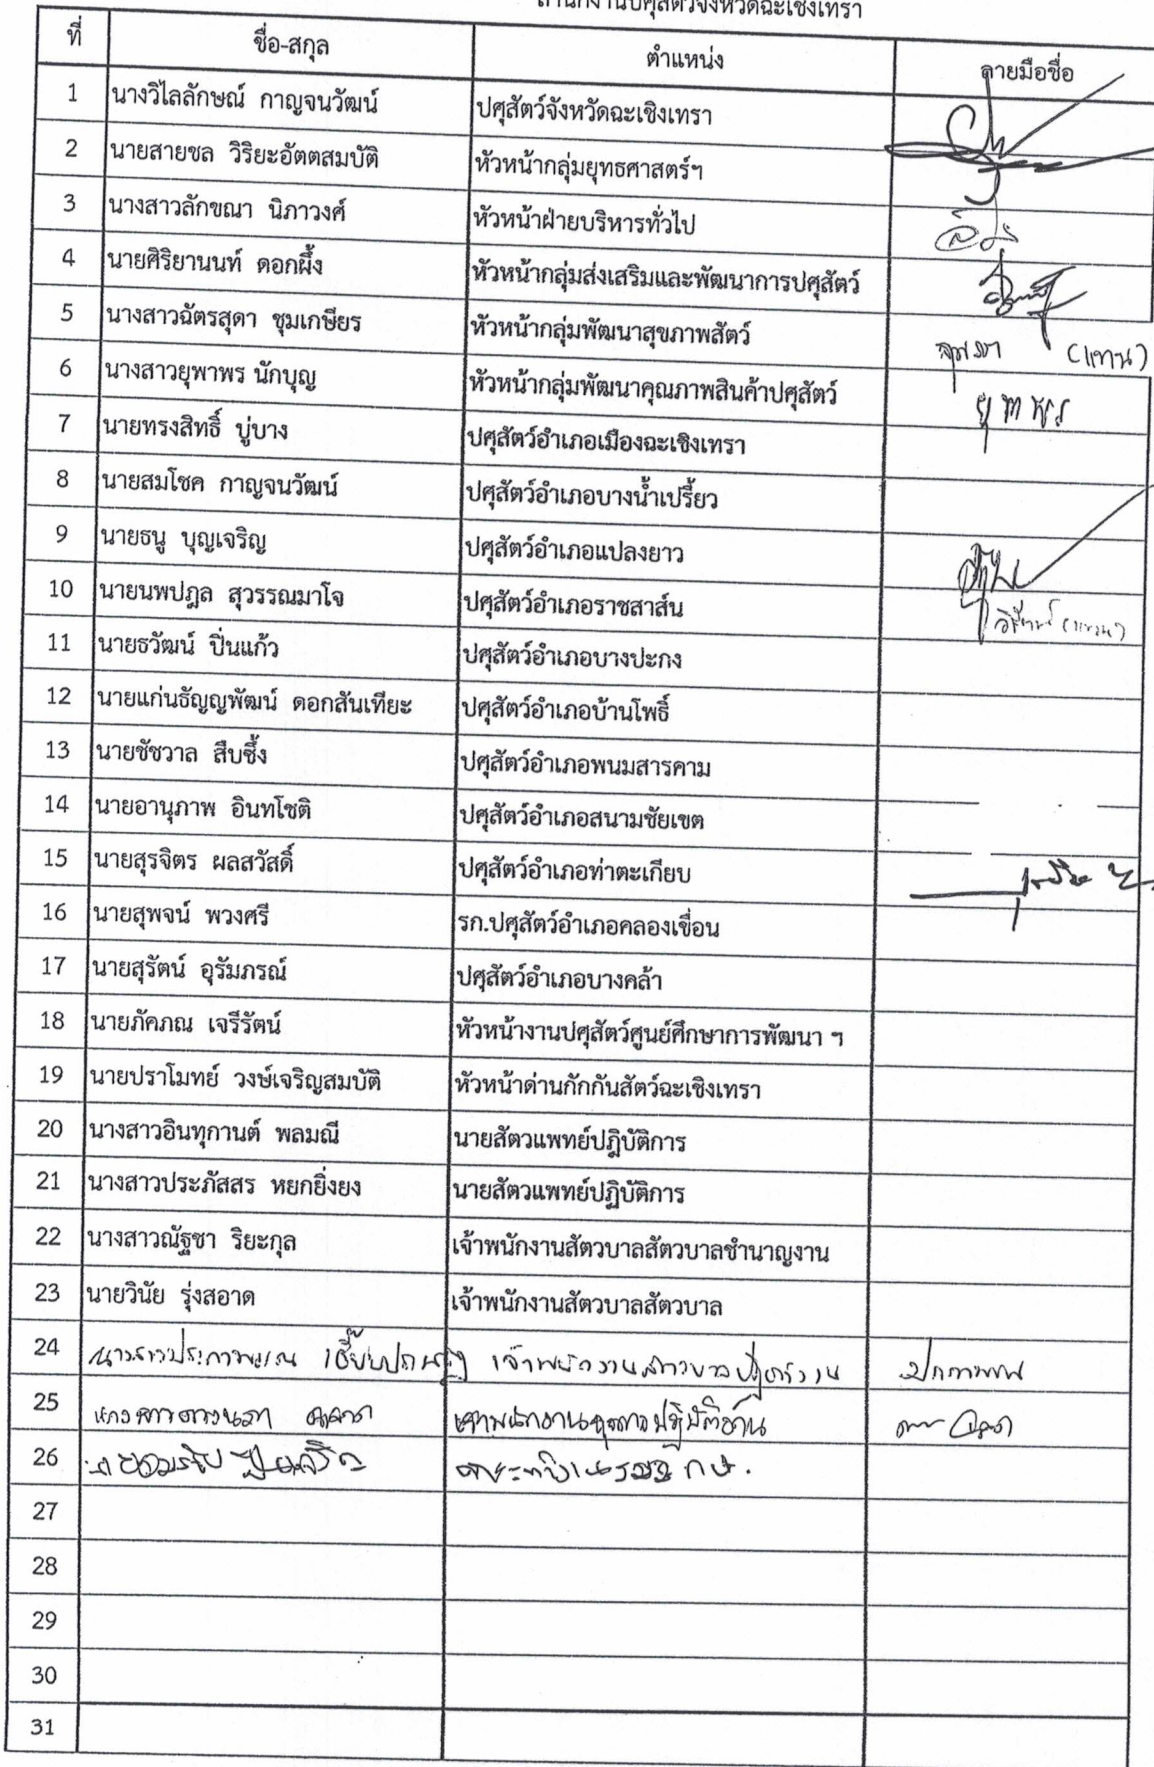 สำนักงานปศุสัตว์จังหวัดฉะเชิงเทรา
ที่ ชื่อ-สกุล ตำแหน่ง ลายมือชื่อ
1 นางวิไลลักษณ์ กาญจนวัฒน์ ปศุสัตว์จังหวัดฉะเชิงเทรา
2 นายสายชล วิริยะอัตตสมบัติ หัวหน้ากลุ่มยุทธศาสตร์ฯ
3 นางสาวลักขณา นิภาวงศ์ หัวหน้าฝ่ายบริหารทั่วไป
4 นายศิริยานนท์ ดอกผึ้ง หัวหน้ากลุ่มส่งเสริมและพัฒนาการปศุสัตว์
5 นางสาวฉัตรสุดา ชุมเกษียร หัวหน้ากลุ่มพัฒนาสุขภาพสัตว์ (แทน)
6 นางสาวยุพาพร นักบุญ หัวหน้ากลุ่มพัฒนาคุณภาพสินค้าปศุสัตว์ ยุพาพร
7 นายทรงสิทธิ์ บู่บาง ปศุสัตว์อำเภอเมืองฉะเชิงเทรา
8 นายสมโชค กาญจนวัฒน์ ปศุสัตว์อำเภอบางน้ำเปรี้ยว
9 นายธนู บุญเจริญ ปศุสัตว์อำเภอแปลงยาว
10 นายนพปฎล สุวรรณมาโจ ปศุสัตว์อำเภอราชสาส์น (แทน)
11 นายธวัฒน์ ปิ่นแก้ว ปศุสัตว์อำเภอบางปะกง
12 นายแก่นธัญญพัฒน์ ดอกสันเทียะ ปศุสัตว์อำเภอบ้านโพธิ์
13 นายชัชวาล สืบซึ้ง ปศุสัตว์อำเภอพนมสารคาม
14 นายอานุภาพ อินทโชติ ปศุสัตว์อำเภอสนามชัยเขต
15 นายสุรจิตร ผลสวัสดิ์ ปศุสัตว์อำเภอท่าตะเกียบ
16 นายสุพจน์ พวงศรี รก.ปศุสัตว์อำเภอคลองเขื่อน
17 นายสุรัตน์ อุรัมภรณ์ ปศุสัตว์อำเภอบางคล้า
18 นายภัคภณ เจรีรัตน์ หัวหน้างานปศุสัตว์ศูนย์ศึกษาการพัฒนา ฯ
19 นายปราโมทย์ วงษ์เจริญสมบัติ หัวหน้าด่านกักกันสัตว์ฉะเชิงเทรา
20 นางสาวอินทุกานต์ พลมณี นายสัตวแพทย์ปฏิบัติการ
21 นางสาวประภัสสร หยกยิ่งยง นายสัตวแพทย์ปฏิบัติการ
22 นางสาวณัฐชา ริยะกุล เจ้าพนักงานสัตวบาลสัตวบาลชำนาญงาน
23 นายวินัย รุ่งสอาด เจ้าพนักงานสัตวบาลสัตวบาล
24 นางสาว เจ้าพนักงานสัตวบาลปฏิบัติงาน
25 นางสาว เจ้าพนักงานธุรการปฏิบัติงาน
26
27
28
29
30
31